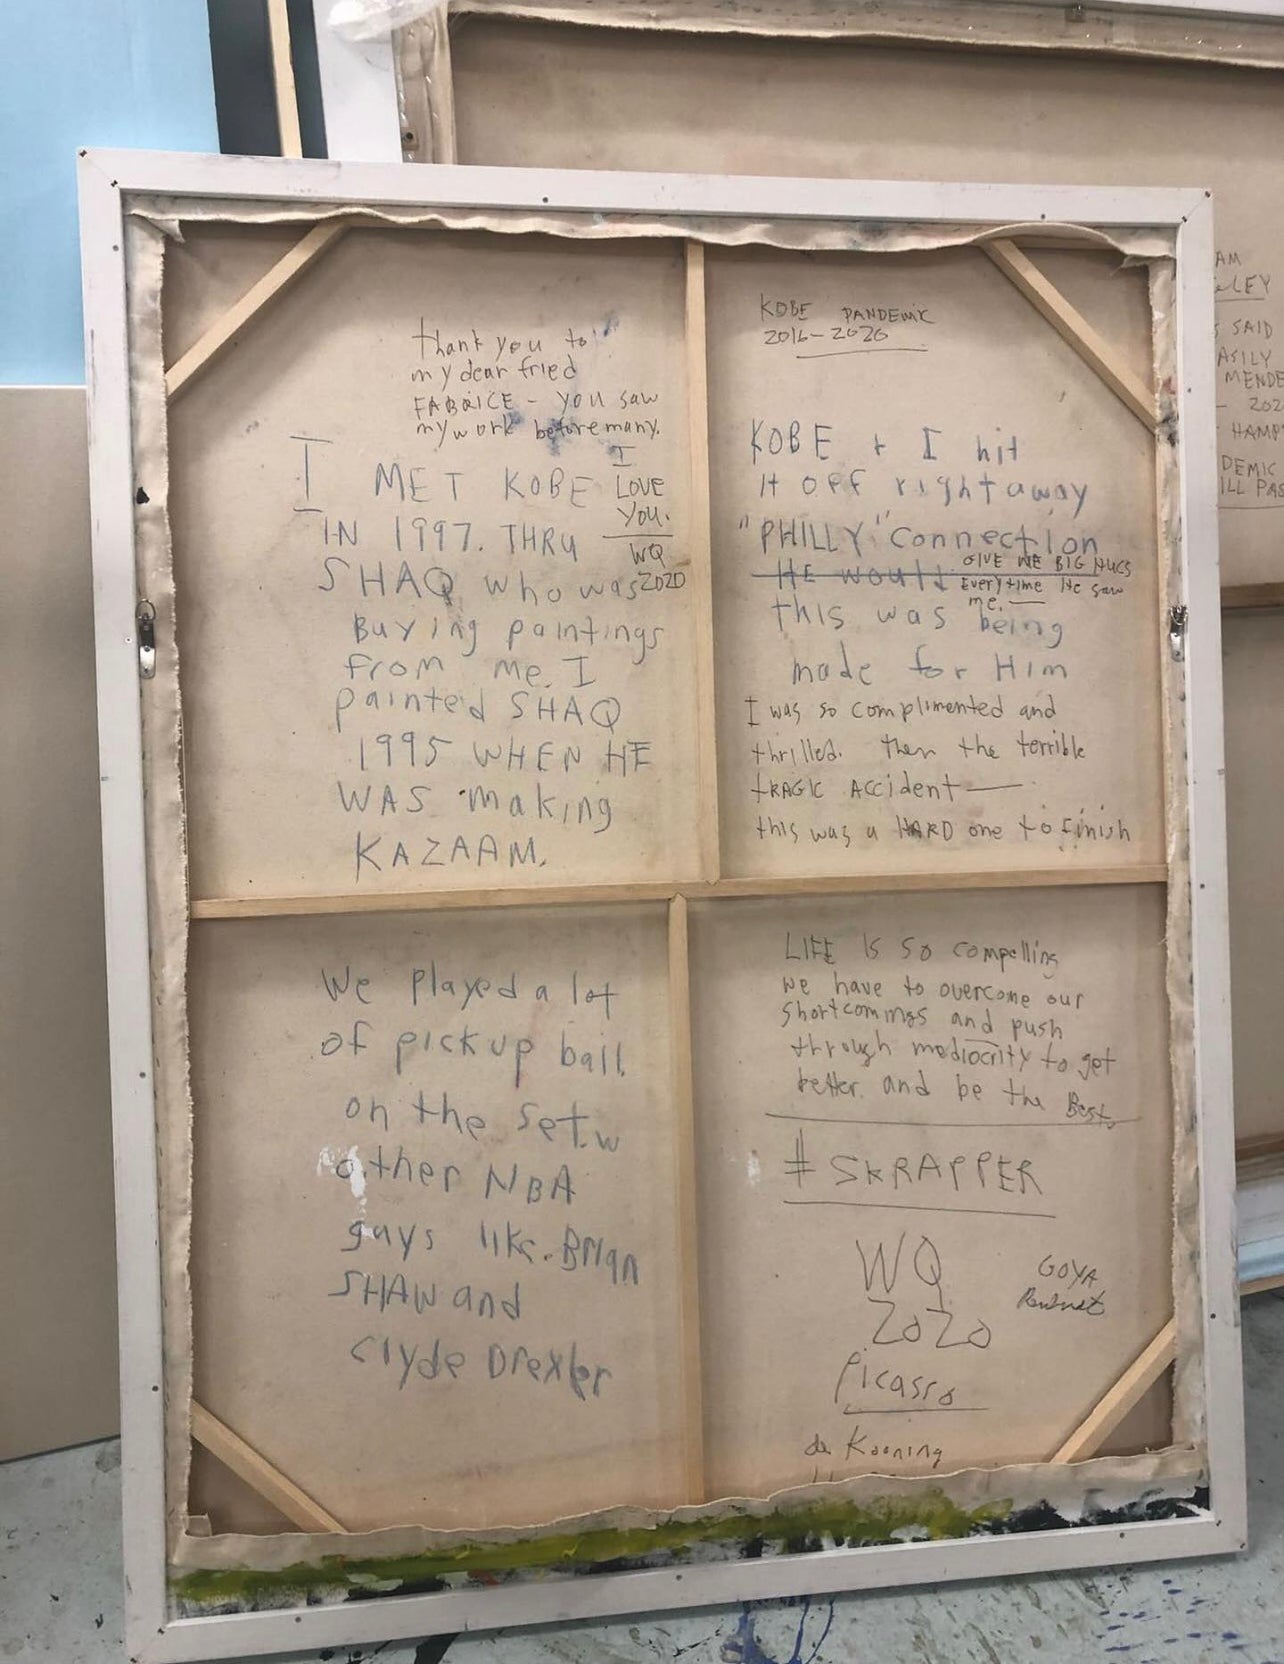 thank you to
my dear fried
FABRICE - YOU SAW
my work before many.
I
LOVE
YOU.
WQ
2020
I MET KOBE
IN 1997. THRU
SHAQ who was
Buying paintings
from me. I
painted SHAQ
1995 WHEN HE
WAS making
KAZAAM.
We played a lot
of pickup ball.
on the set. w
other NBA
guys like. Brian
SHAW and
Clyde Drexler
KOBE PANDEMIC
2016-2020
KOBE + I hit
it off right away
"PHILLY" connection
HE would GIVE ME BIG HUGS
Everytime He saw
me. —
this was being
made for Him
I was so complimented and
thrilled. then the terrible
tRAGIC ACCident —
this was a HARD one to Finish
LIFE is so compelling
we have to overcome our
shortcomings and push
through mediocrity to get
better. and be the Best.
# SKRAPPER
WQ
2020
GOYA
Picasso
de Kooning
AM
LEY
SAID
ASILY
MENDE
- 202
HAMP
DEMIC
ILL PAS